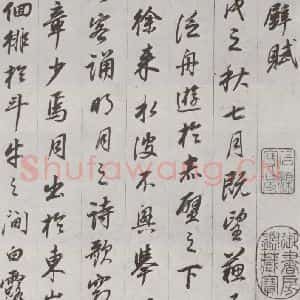 壁賦
戌之秋七月既望蘇
泛舟遊於赤壁之下
徐來水波不興舉
客誦明月之詩歌窈
章少焉月出於東山
佪徘於斗牛之間白露
御書房鑑藏寶
Shufawang.cn